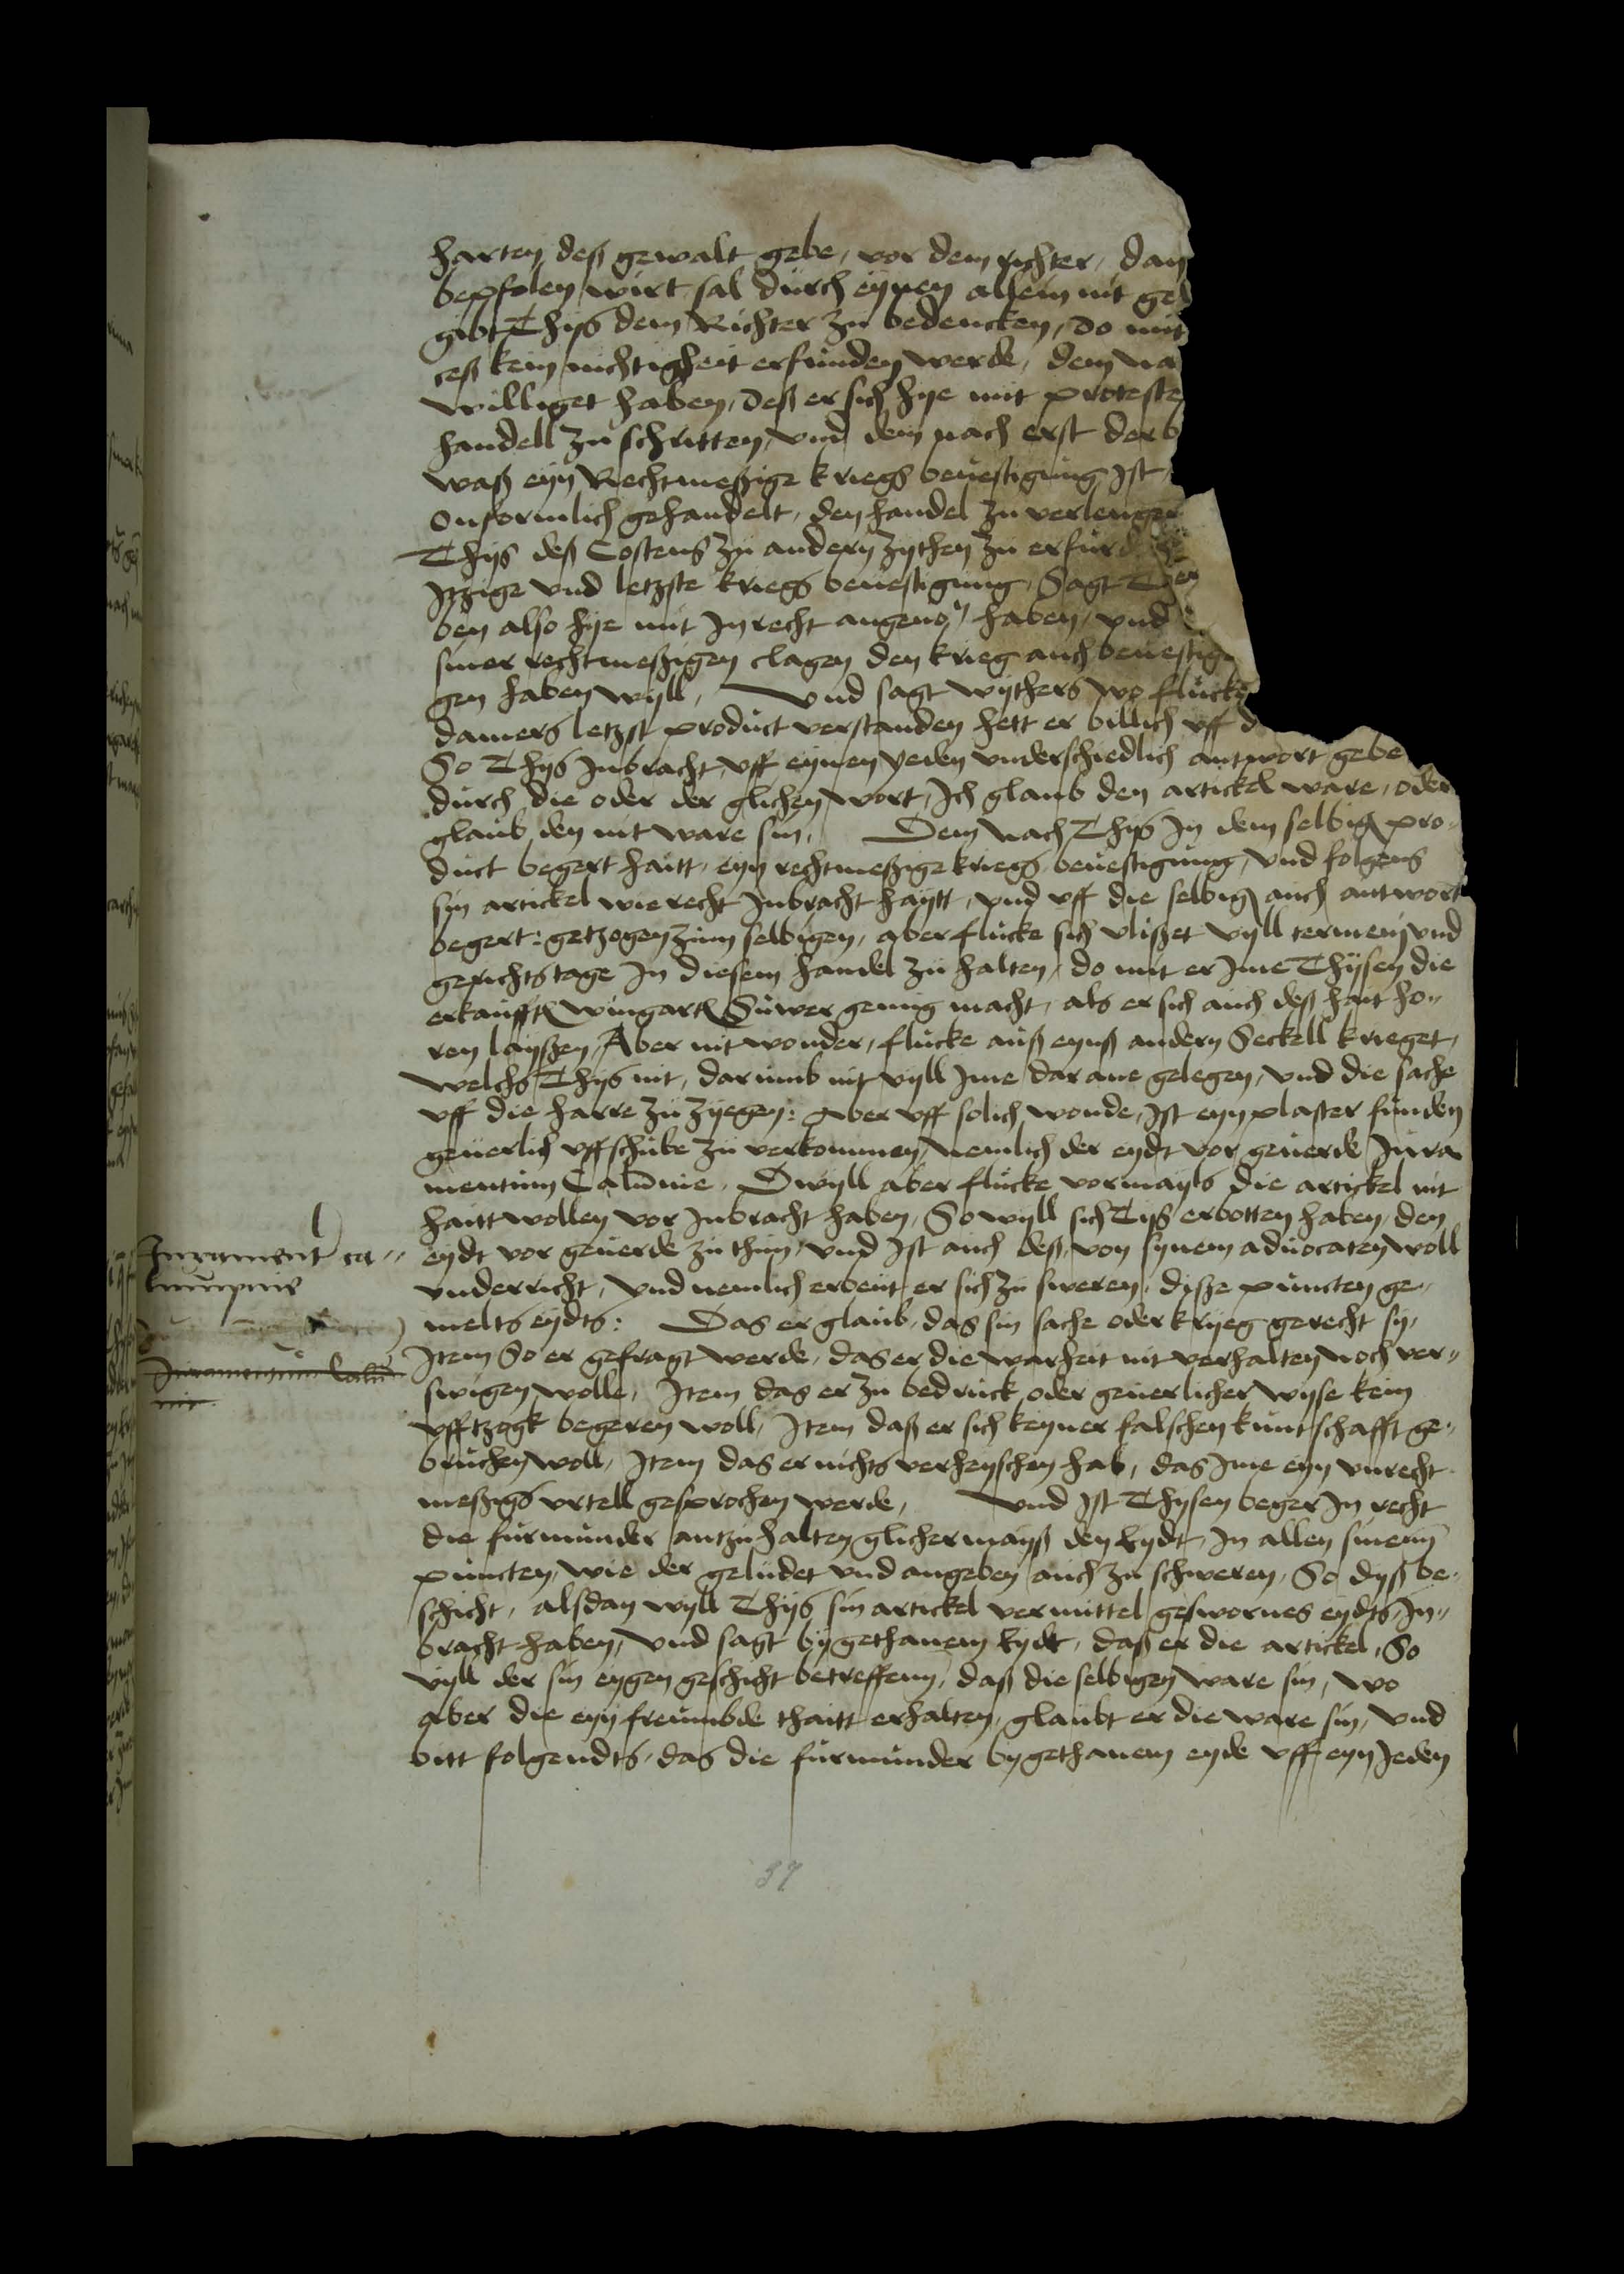 harten deß gewalt gebe, vor dem richter, dan
bepfolen wirt sal durch eynen allein nit ge
gibt Thijs dem Richter zu bedencken, do mit
ceß kein nichtigheit erfunden werde, dem na
williget haben, deß er sich hye mit proteste
handell zu schritten, vnd dem nach erst der
waß eyn Rechtmeßige kriegs beuestigung Ist
Onformlich gehandelt, den handel zu verlenger
Thijs deß Costens zu andern zythen zu erfurd
Itzige vnd letzste kriegs beuestigung, Sagt
ben also hye mit In recht angeno haben, vnd
siner rechtmeßigen clagen den krieg auch beuestig
gen haben wyll, Vnd sagt wythers wo flucke
damers letzst product verstanden hett er billich vff d
So Thijs Inbracht, vff eynen yeden vnderschiedlich antwort gebe
durch die oder der glichen wort, Ich glaub den artickel ware, oder
glaub den nit ware sin, Dem nach Thijs In dem selbig pro-
duct begert haitt, eyn rechtmeßige kriegs beuestigung, vnd folgens
sin artickel wie recht Inbracht haytt, vnd vff die selbig auch antwort
begert: getzogen zum selbigen, aber flucke sich vlißet vyll termeyn vnd
gerichts tage In diesem handel zu halten, do mit er Ime Thijsen die
erkaufft wingart Suwer genug macht, als er sich auch deß hait ho-
ren layßen, Aber nit wonder, flucke auß eynß andern Seckell krieget,
welchs Thijs nit, darumb nit vyll Ime dar ane gelegen, vnd die sache
vff die harre zu zyegen: Aber vff solich wonde, Ist eyn plaster funden
geuerlich vffschube zu verkommen, nemlich der eydt vor geuerde Jura
mentum Calumnie. Dwyll aber flucke vormayls die artickel nit
haitt wollen vor Inbracht haben, So wyll sich Tijs erbotten haben, den
Jurament ca-
eydt vor geuerde zu thun, vnd Ist auch deß, von synem aduocaten woll
lumpnie
vnderricht, vnd nemlich erbeut er sich zu sweren, diße puncten ge-
melts eydts: Das er glaub, das sin sache oder kryeg gerecht sy,
Juramentum Calu
Item So er gefragt werde, das er die warheit nit verhalten noch ver-
nie
swigen wolle, Item das er zu bedruck oder geuerlicher wyse kein
vfftzogk begeren woll, Item daß er sich keyner falschen kuntschafft ge-
bruchen woll, Item das er nichts verheyschen hab, das Ime eyn vnrecht
meßigs vrtell gesprochen werde, Vnd Ist Thysen beger In recht
die furmunder antzuhalten glichermayß den Eydt, In allen sinenn
puncten, wie der geludet vnd angeben auch zu schweren, So dyß be-
schicht, alsdan wyll Thijs sin artickel vermittel geswornes eydts, In-
bracht haben, vnd sagt by gethanem Eydt, daß er die artickel, So
vyll der sin eygen geschicht betreffenn, daß die selbigen ware sin, wo
aber die eyn freumbde thaitt erhalten, glaubt er die ware sin, vnd
bitt folgendts, das die furmunder by gethanem eyde vff eyn Jeden
37